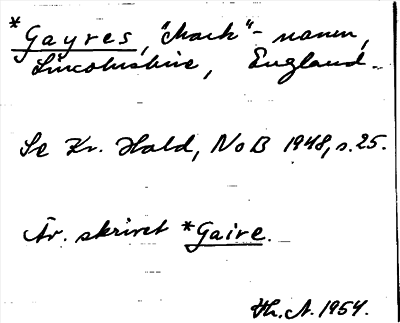 *Gayres, "Mark"-namn,
Lincolnshire, England.
Se Kr. Hald, NoB 1948, s. 25.
Äv. skrivet *Gaire.
Th. A. 1954.